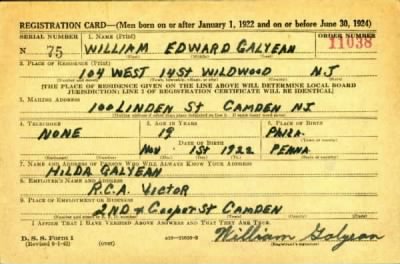 REGISTRATION CARD—(Men born on or after January 1, 1922 and on or before June 30, 1924)
SERIAL NUMBER 1. NAME (Print) ORDER NUMBER
N 75 WILLIAM EDWARD GALYEAN 11038
2. PLACE OF RESIDENCE (Print)
104 WEST 14 St WILDWOOD N.J
[THE PLACE OF RESIDENCE GIVEN ON THE LINE ABOVE WILL DETERMINE LOCAL BOARD
JURISDICTION; LINE 2 OF REGISTRATION CERTIFICATE WILL BE IDENTICAL]
3. MAILING ADDRESS
100 LINDEN St CAMDEN NJ
4. TELEPHONE 5. AGE IN YEARS 6. PLACE OF BIRTH
NONE 19 PHILA.
DATE OF BIRTH
Nov 1st 1922 PENNA
7. NAME AND ADDRESS OF PERSON WHO WILL ALWAYS KNOW YOUR ADDRESS
HILDA GALYEAN
8. EMPLOYER'S NAME AND ADDRESS
R.C.A. VICTOR
9. PLACE OF EMPLOYMENT OR BUSINESS
2ND & Cooper St CAMDEN
I AFFIRM THAT I HAVE VERIFIED ABOVE ANSWERS AND THAT THEY ARE TRUE.
D. S. S. Form 1
(Revised 6-1-42) (over) William Galyean